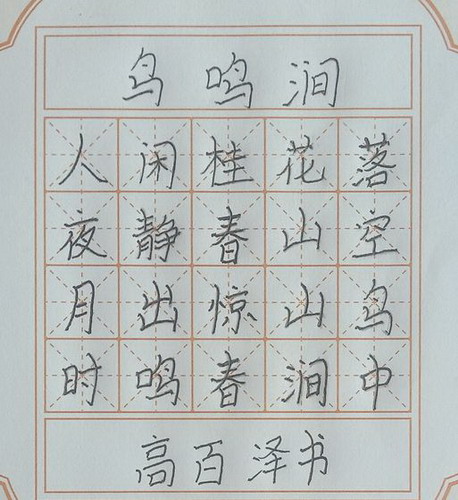 鸟鸣涧
人闲桂花落
夜静春山空
月出惊山鸟
时鸣春涧中
高百泽书